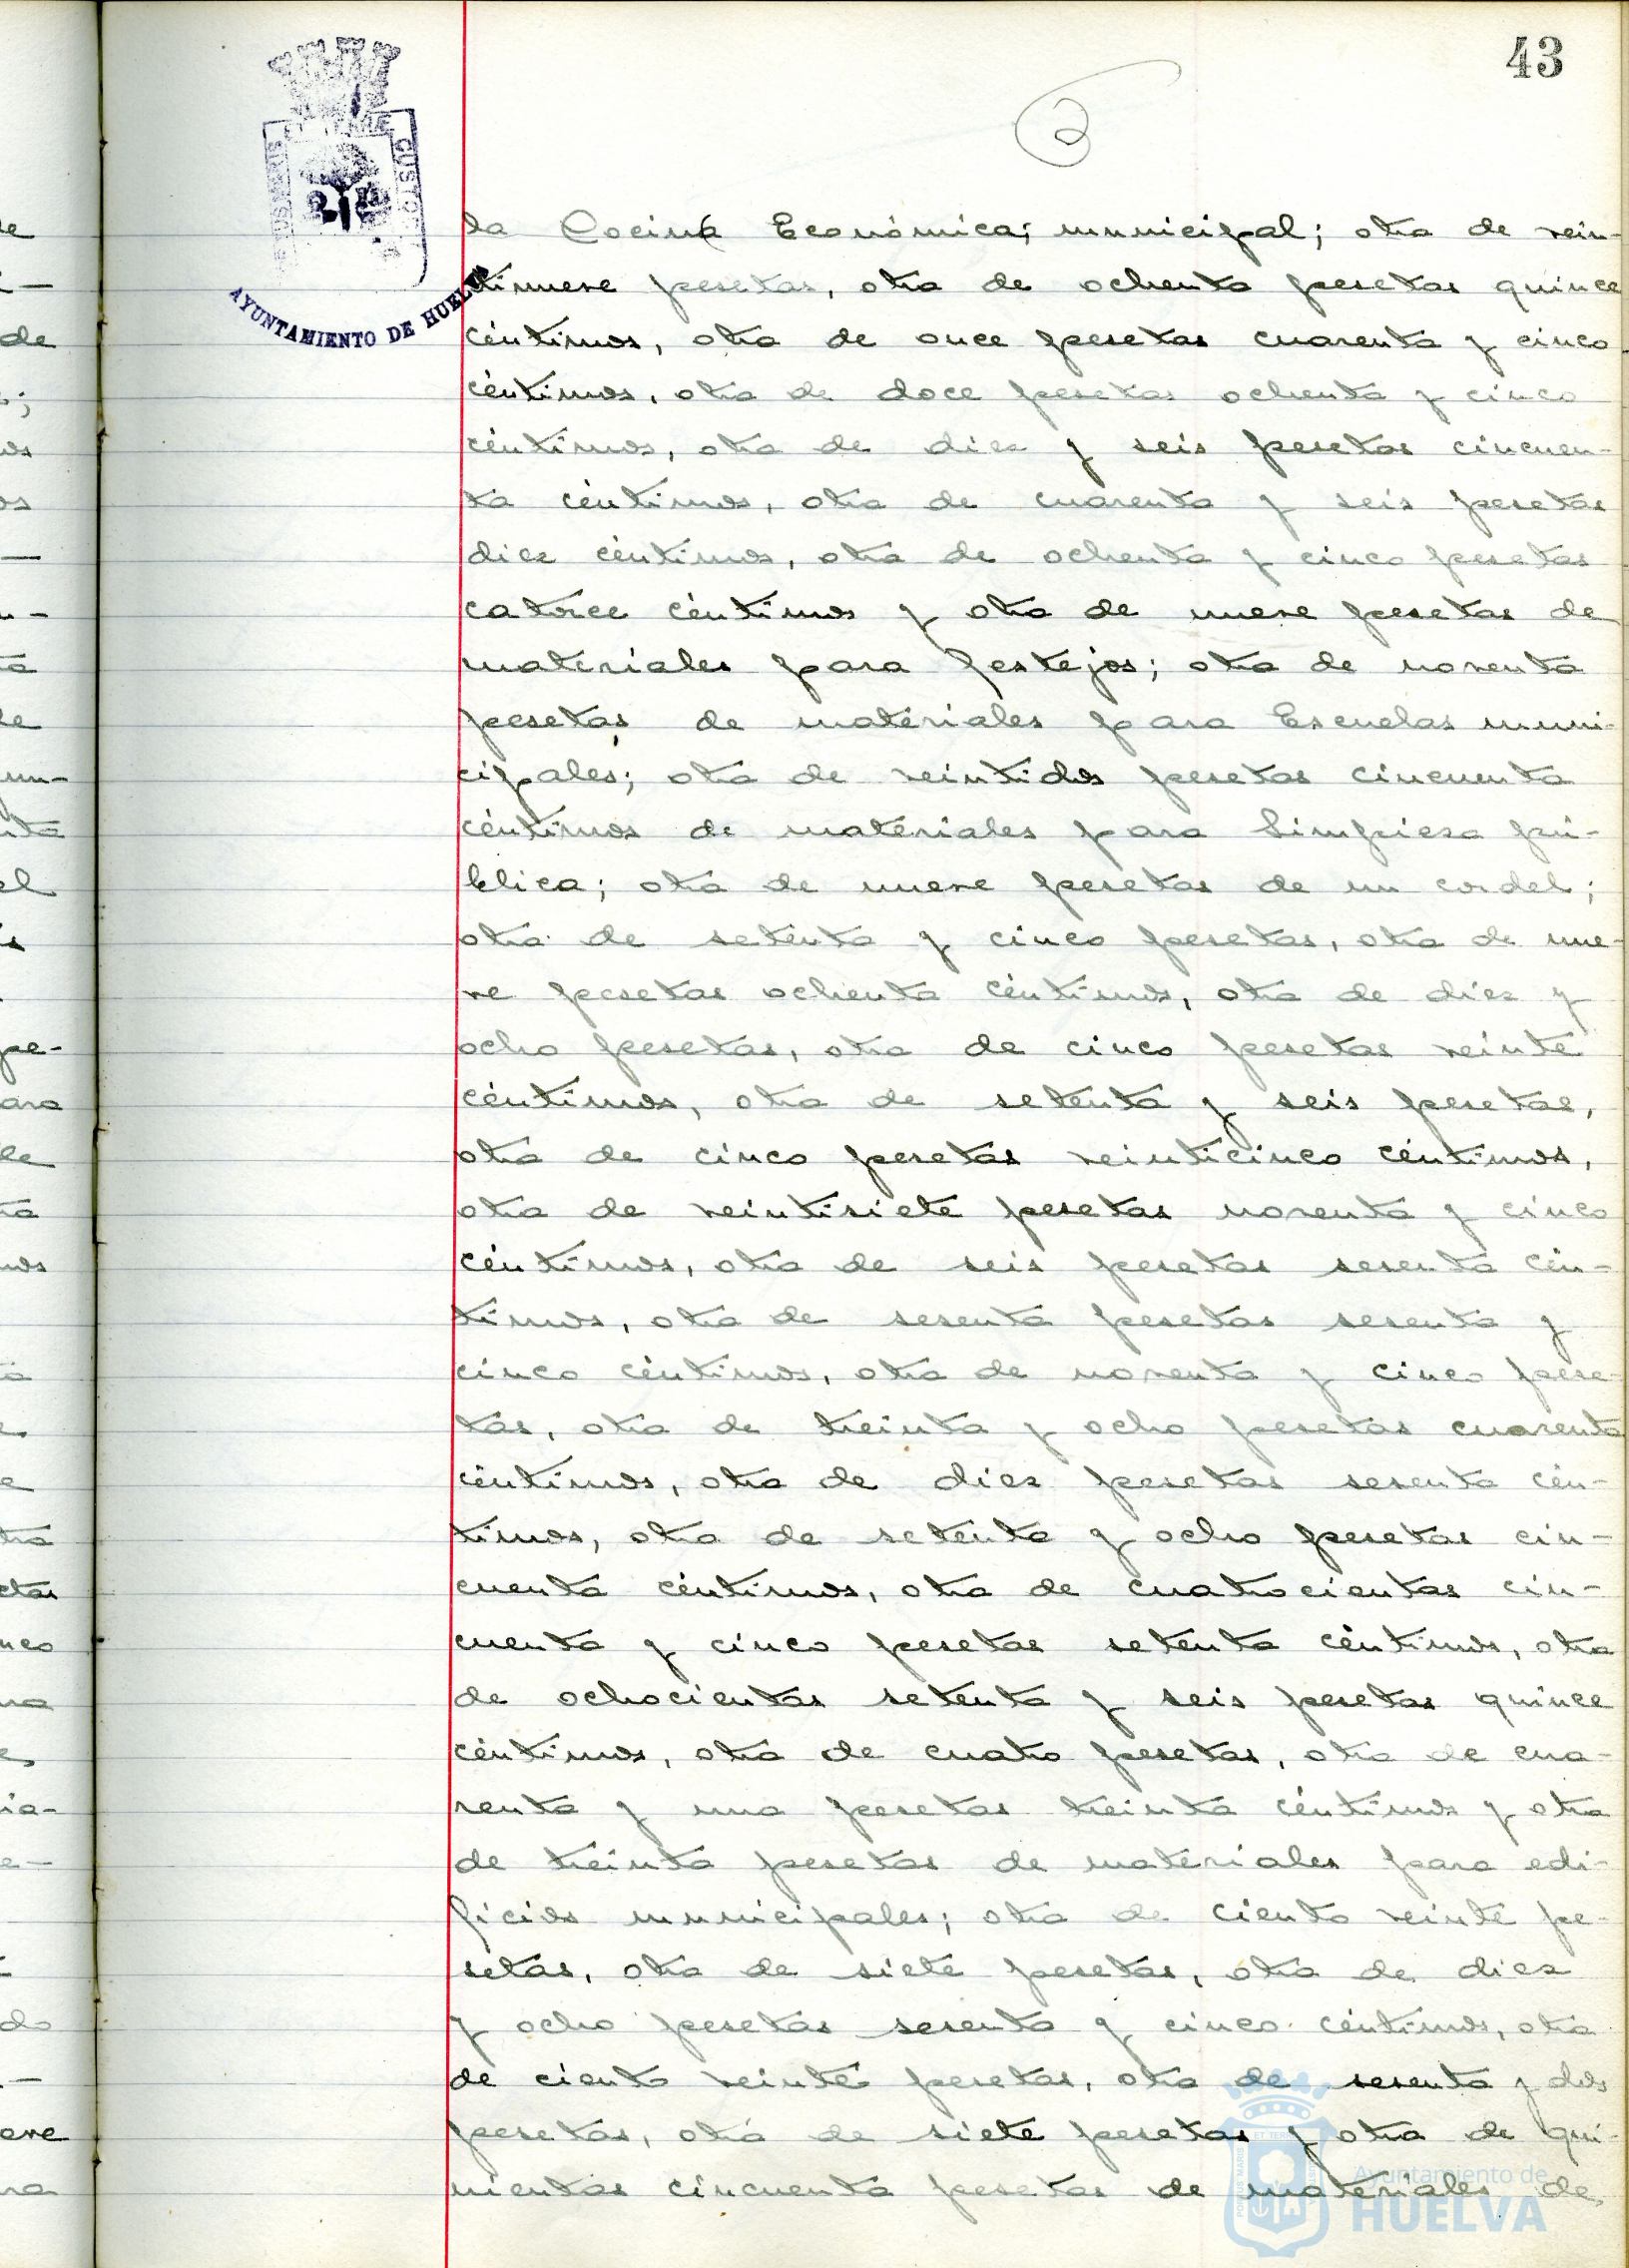 43
AYUNTAMIENTO DE HUELVA
la Cocina Económica; municipal; otra de vein-
tinueve pesetas, otra de ochenta pesetas quince
céntimos, otra de once pesetas cuarenta y cinco
céntimos, otra de doce pesetas ochenta y cinco
céntimos, otra de diez y seis pesetas cincuen-
ta céntimos, otra de cuarenta y seis pesetas
diez céntimos, otra de ochenta y cinco pesetas
catorce céntimos y otra de nueve pesetas de
materiales para festejos; otra de noventa
pesetas de materiales para Escuelas muni-
cipales; otra de veintidos pesetas cincuenta
céntimos de materiales para Limpieza pú-
blica; otra de nueve pesetas de un cordel;
otra de setenta y cinco pesetas, otra de nue-
ve pesetas ochenta céntimos, otra de diez y
ocho pesetas, otra de cinco pesetas veinte
céntimos, otra de setenta y seis pesetas,
otra de cinco pesetas veinticinco céntimos,
otra de veintisiete pesetas noventa y cinco
céntimos, otra de seis pesetas sesenta cén-
timos, otra de sesenta pesetas sesenta y
cinco céntimos, otra de noventa y cinco pese-
tas, otra de treinta y ocho pesetas cuarenta
céntimos, otra de diez pesetas sesenta cén-
timos, otra de setenta y ocho pesetas cin-
cuenta céntimos, otra de cuatrocientas cin-
cuenta y cinco pesetas setenta céntimos, otra
de ochocientas setenta y seis pesetas quince
céntimos, otra de cuatro pesetas, otra de cua-
renta y una pesetas treinta céntimos y otra
de treinta pesetas de materiales para edi-
ficios municipales; otra de ciento veinte pe-
setas, otra de siete pesetas, otra de diez
y ocho pesetas sesenta y cinco céntimos, otra
de ciento veinte pesetas, otra de sesenta y dos
pesetas, otra de siete pesetas y otra de qui-
nientas cincuenta pesetas de materiales de
Ayuntamiento de
HUELVA